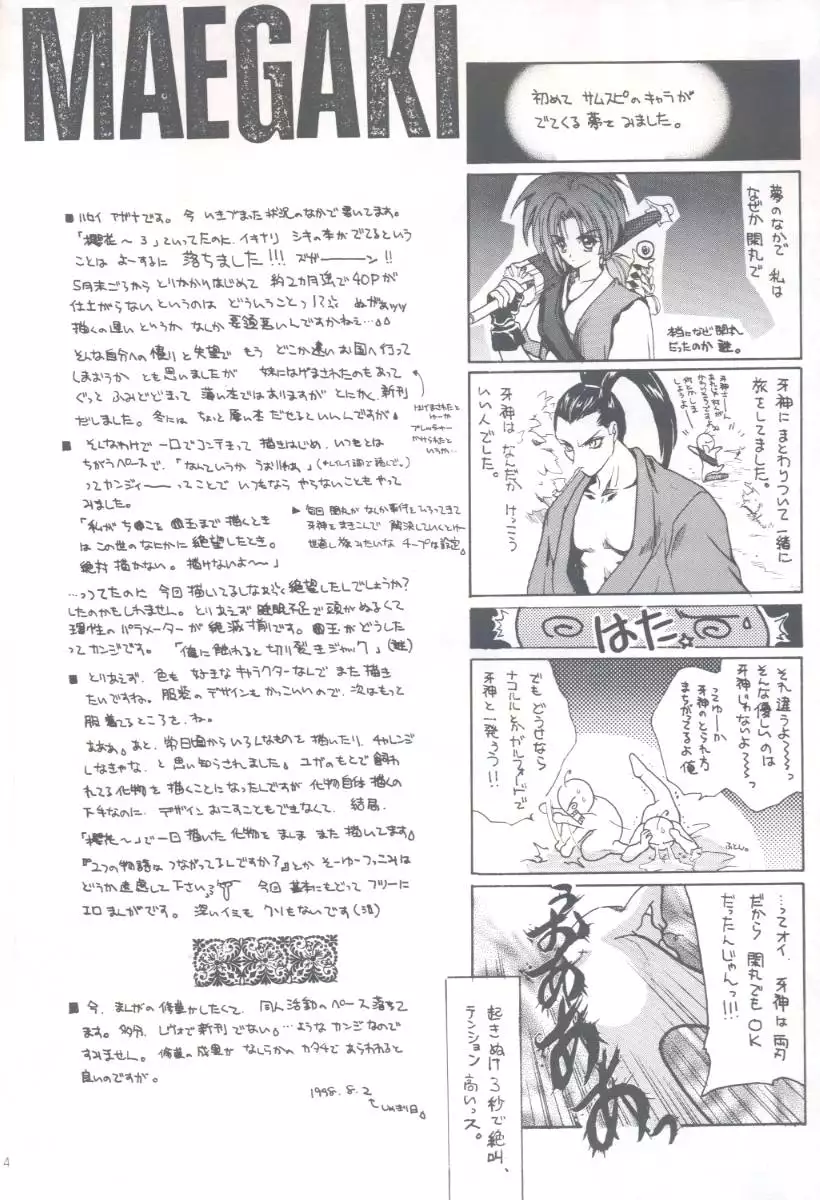 MAEGAKI
■ ハセイ アザナです。今 いきづまった状況のなかで書いてます。
「櫻花〜3」といってたのに、イキナリ シキの本がでてるという
ことは よーするに 落ちました!!! ズガーーーン!!
5月末ごろから とりかかりはじめて 約2カ月強で 40Pが
仕上がらない というのは どういうことっ!?
描くの遅い どりょうか なしか 要領悪いんですかねェ…
そんな自分への憤りと失望で もう どこか遠いお国へ行って
しまおうか とも思いましたが 妹にはげまされたのもあって
ぐっと ふみとどまって 薄い本ではありますが とにかく、新刊
だしました。冬には ちょっと 厚い本 だせるといいんですが。
はげまされたと
ゆーか
プレッシャー
かけられたと
いうか…
■ そんなわけで 一日でコンテきって 描きはじめ、いつもとは
ちがうペースで、「なんていうか うおりゃあ」
ってカンジィー ってことで いつもなら やらないことも やって
みました。
「私が ち●こと ●玉まで 描くとき
は この世のなにかに 絶望したとき。
絶対 描かない。描けないよ〜」
▶ 毎回 閑丸が なんか事件を ひろってきて
牙神をまきこんで 解決していくとゆー
世直し旅みたいな チープな設定。
…ってたのに 今回 描いてるし 絶望したんでしょうか?
したのかもしれません。とりあえず 睡眠不足で 頭が ぬるくて
理性の パラメーターが 絶滅寸前です。●玉が どうした
ってカンジです。「俺に触れると 切り裂きジャック」(謎)
■ とりあえず、色も 好きな キャラクターなんで また 描き
たいですね。服装の デザインも かっこいいので、次はもっと
服着てるところを、ね。
あと、常日頃から いろんなものを 描いたり、チャレンジ
しなきゃな、と 思い知らされました。ユガのもとで 飼わ
れてる化物を 描くことに なったんですが 化物自体 描くの
下手なのに、デザイン おこすことも できなくて、結局
「櫻花〜」で 一日 描いた 化物を また 描いてます。
『2つの物語は つながってるんですか?』とか そーゆーつっこみは
どうか 遠慮して 下さい。 今回 基本にもどって フツーに
エロ まんがです。深いイミも クソもないです(泣)
■ 今、まんがの 修業がしたくて、同人活動の ペース 落ちて
ます。多分、レヴォで 新刊 でない。…ような カンジなので
すみません。修業の 成果が なんらかの カタチで あらわれると
良いのですが。
1998.8.2
しめきり日。
初めて サムスピの キャラが
でてくる 夢を みました。
夢のなかで 私は
なぜか 閑丸で
本当になぜ 閑丸
だったのか 謎。
牙神に まとわりついて 一緒に
旅をしてました。
牙神は なんだか けっこう
いい人でした。
はた☆
それ違うよ〜〜〜っ
そんな優しいのは
牙神じゃないよ〜〜〜っ
ってゆーか
牙神のとられ方
まちがってるよ 俺
でも どうせなら
ナコルルとか ガルフォードで
牙神と 一発ろう!!
ふとん。
…ってオイ、牙神は 両刃
だから 閑丸でも OK
だったんじゃんっ!!!
うおああああっ
起きぬけ 3秒で 絶叫、
テンション 高いっス。
4